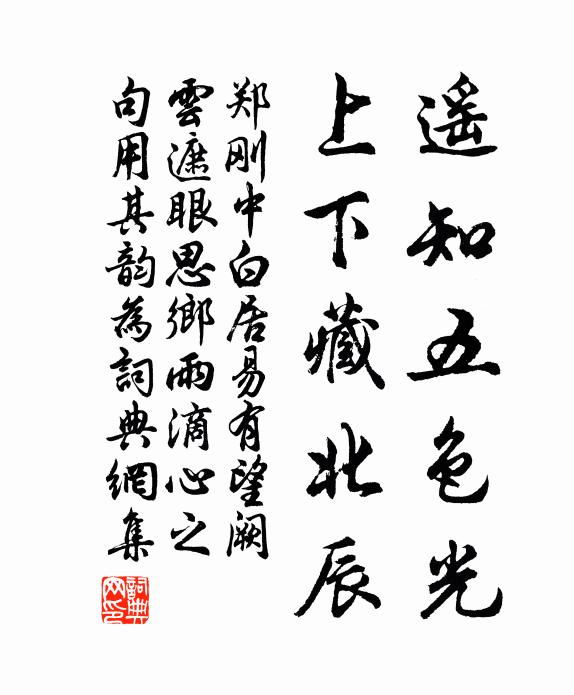 遥知五色光
上下藏北辰
郑刚中白居易有望阙
雲遮眼思鄉雨滴心之
句用其韵為詞典網集
詞典
网印